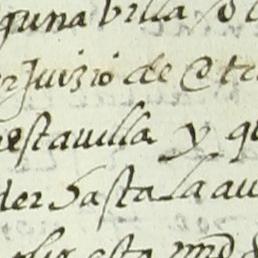 guna billa
rjuizio de otr
estauilla y qu
der hasta la au
esta